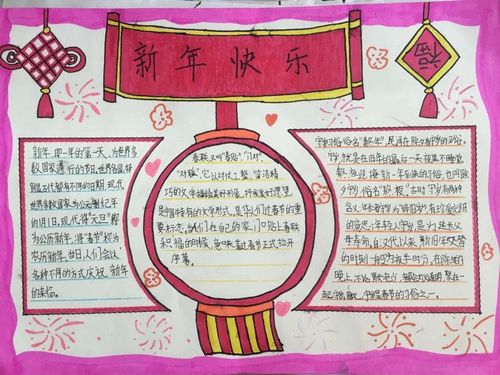 新年快乐
福
新年,即一年的第一天,为世界多
数国家通行的节日,世界各国,特
别是古代都有不同的日期,现代
世界多数国家为公元制纪年
的1月1日,现代将"元旦"称
为公历新年,将"春节"称为
农历新年。当日,人们会以
各种不同的方式庆祝新年
的来临。
春联又叫"春贴"、"门对"、
"对联",它以对仗工整、简洁精
巧的文字描绘美好形象,抒发美好愿望,
是中国特有的文学形式,是华人们过春节的重
要标志。当人们在自己的家门口贴上春联
和福的时候,意味着过春节正式拉开
序幕。
守岁习俗俗名"熬年",民间有除夕守岁的习俗。
守岁,就是在旧年的最后一天夜里不睡觉
熬夜迎接新一年到来的习俗,也叫除
夕守岁,俗名"熬夜"古时守岁有两种
含义:年长者守岁为"辞旧岁",有珍爱光阴
的意思;年轻人守岁,是为延长父
母寿命。自汉代以来,新旧年交替
的时刻一般为夜半时分。在除夕的
晚上,不论男女老少,都会灯火通明,聚在一
起守岁,守岁是春节的习俗之一。